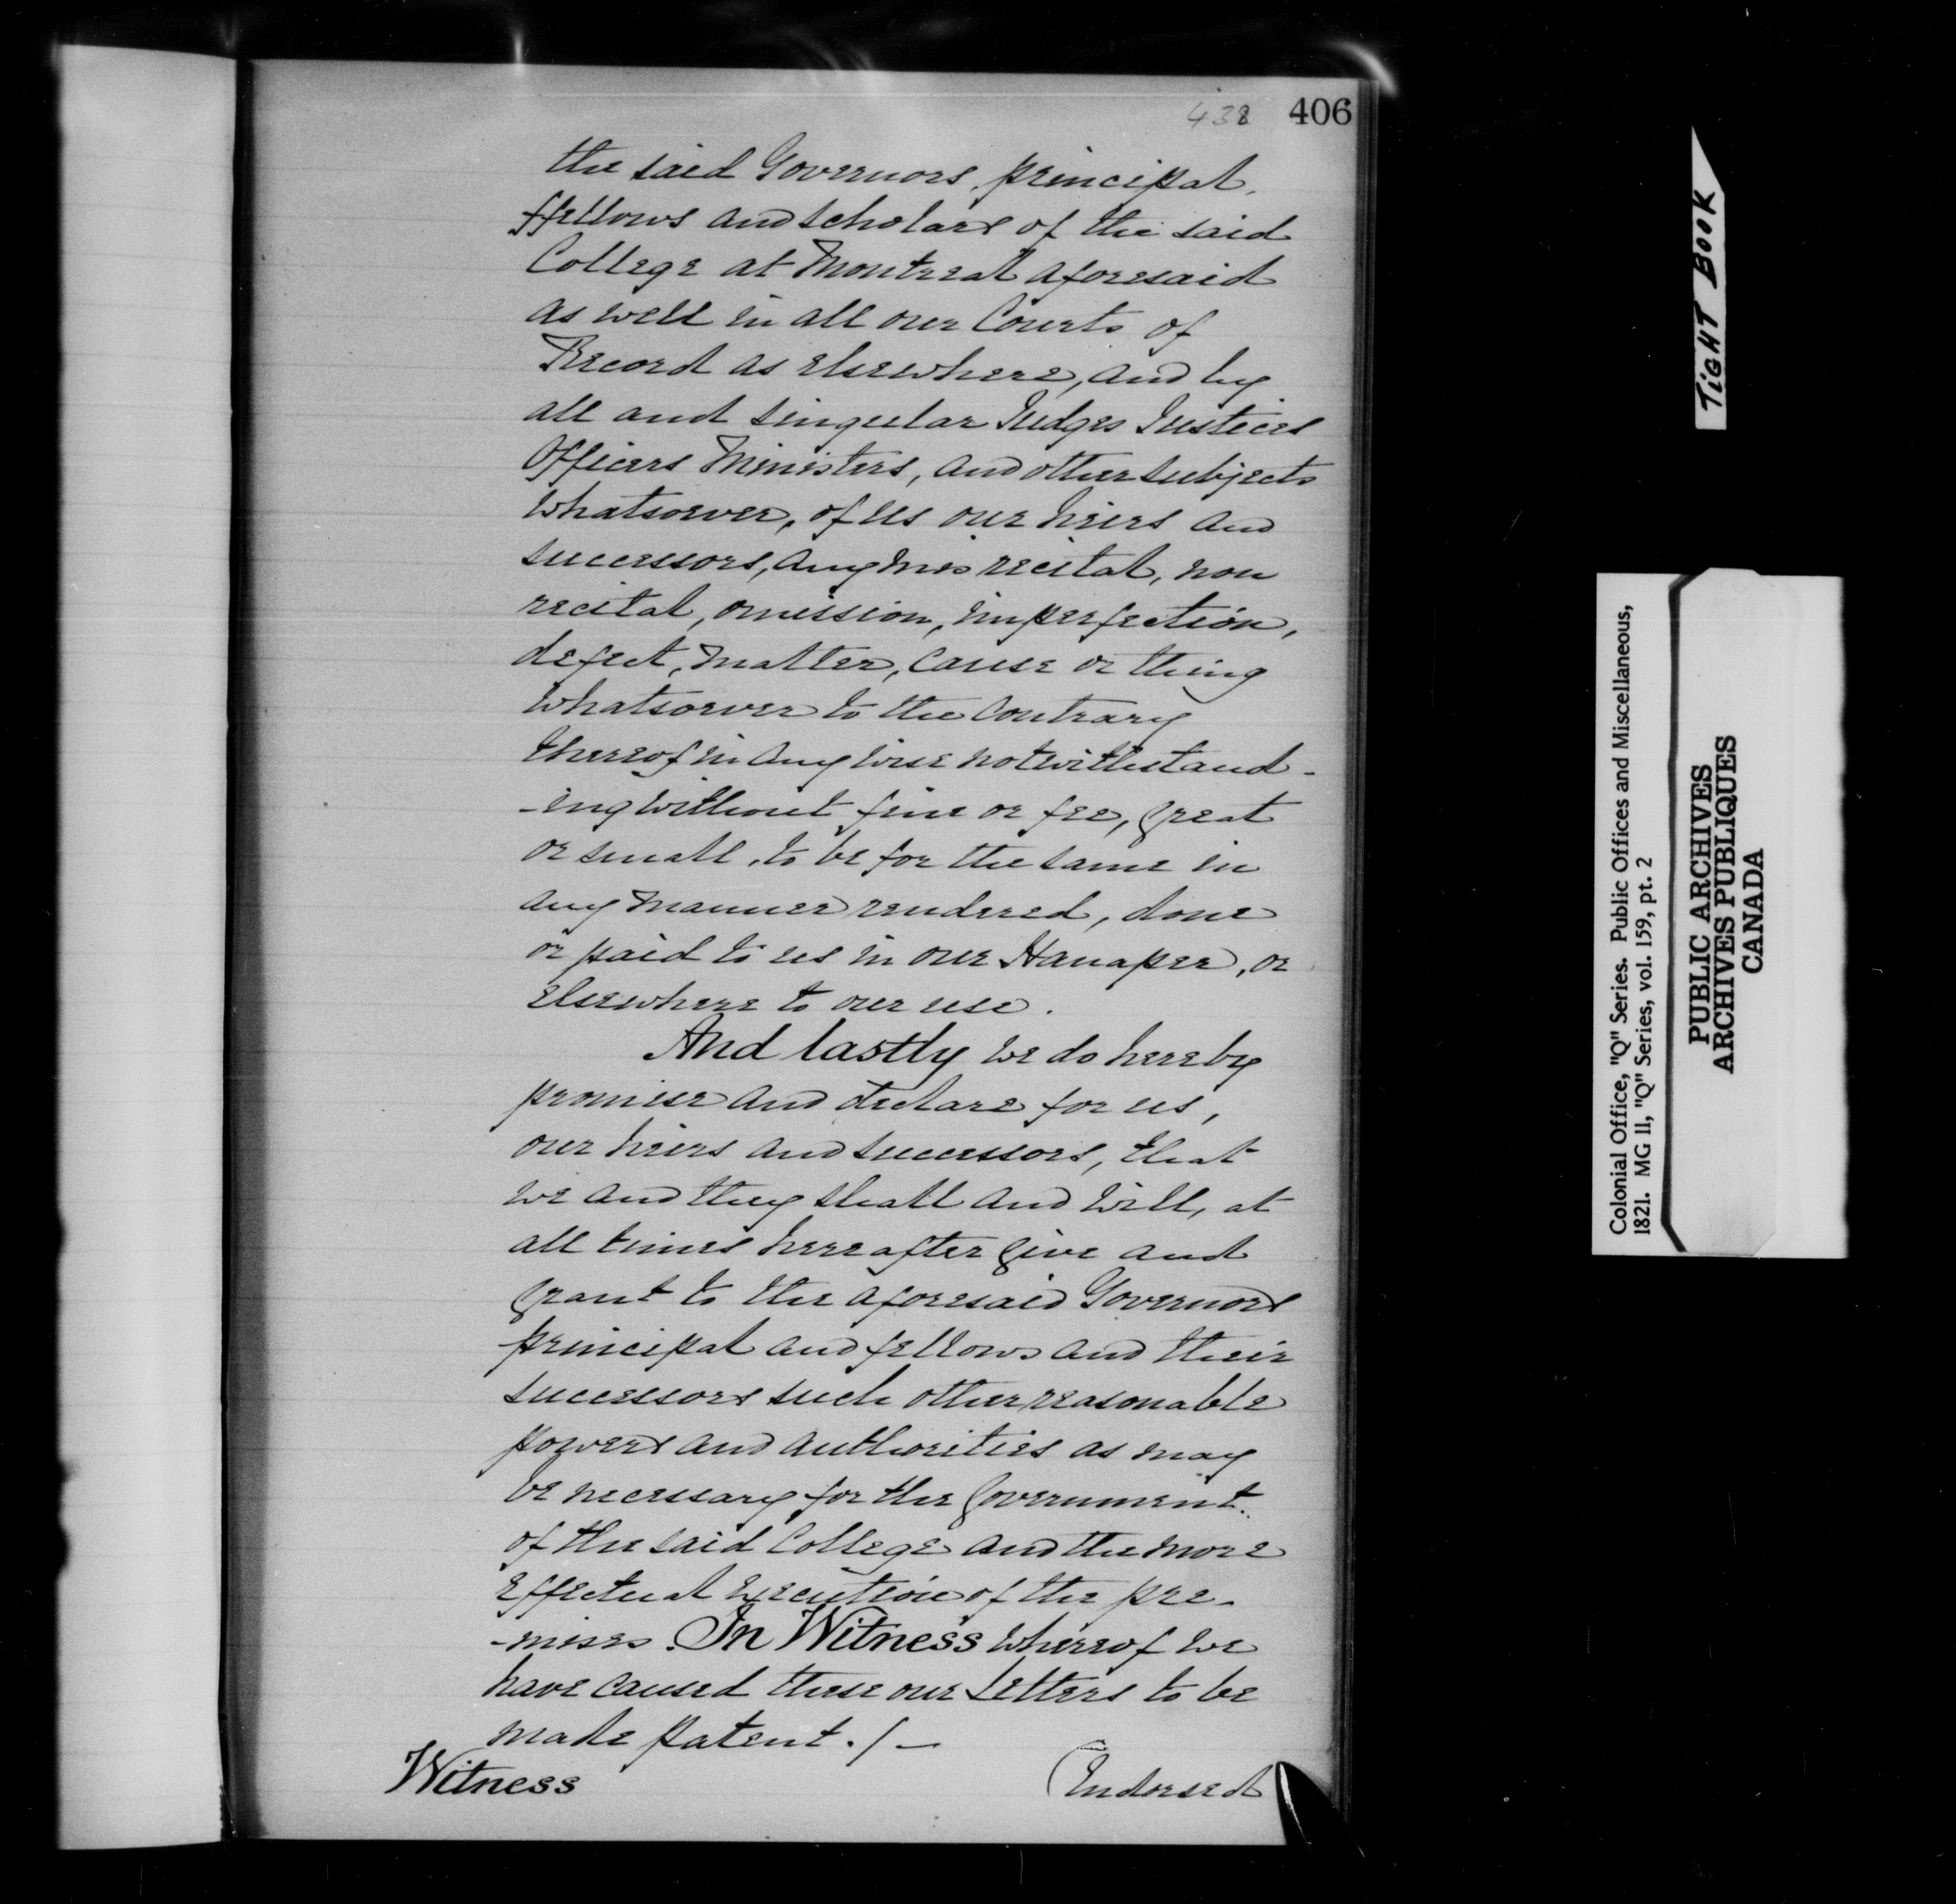 438 406
the said Governors, principal,
ffellows and scholars of the said
College at Montreal aforesaid
as well in all our Courts of
Record as elsewhere, and by
all and singular Judges Justices
Officers Ministers, and other subjects
whatsoever, of us our heirs and
successors, any mis recital, non
recital, omission, imperfection,
defect, matter, cause or thing
whatsoever to the contrary
thereof in any wise notwithstand-
-ing without fine or fee, great
or small, to be for the same in
any manner rendered, done
or paid to us in our Hanaper, or
elsewhere to our use.
And lastly we do hereby
promise and declare for us,
our heirs and successors, that
we and they shall and will, at
all times hereafter give and
grant to the aforesaid Governors
principal and fellows and their
successors such other reasonable
powers and authorities as may
be necessary for the Government
of the said College and the more
effectual execution of the pre-
-mises. In Witness whereof we
have caused these our Letters to be
made patent./-
Witness (Endorsed
TIGHT BOOK
Colonial Office, "Q" Series. Public Offices and Miscellaneous,
1821. MG 11, "Q" Series, vol. 159, pt. 2
PUBLIC ARCHIVES
ARCHIVES PUBLIQUES
CANADA